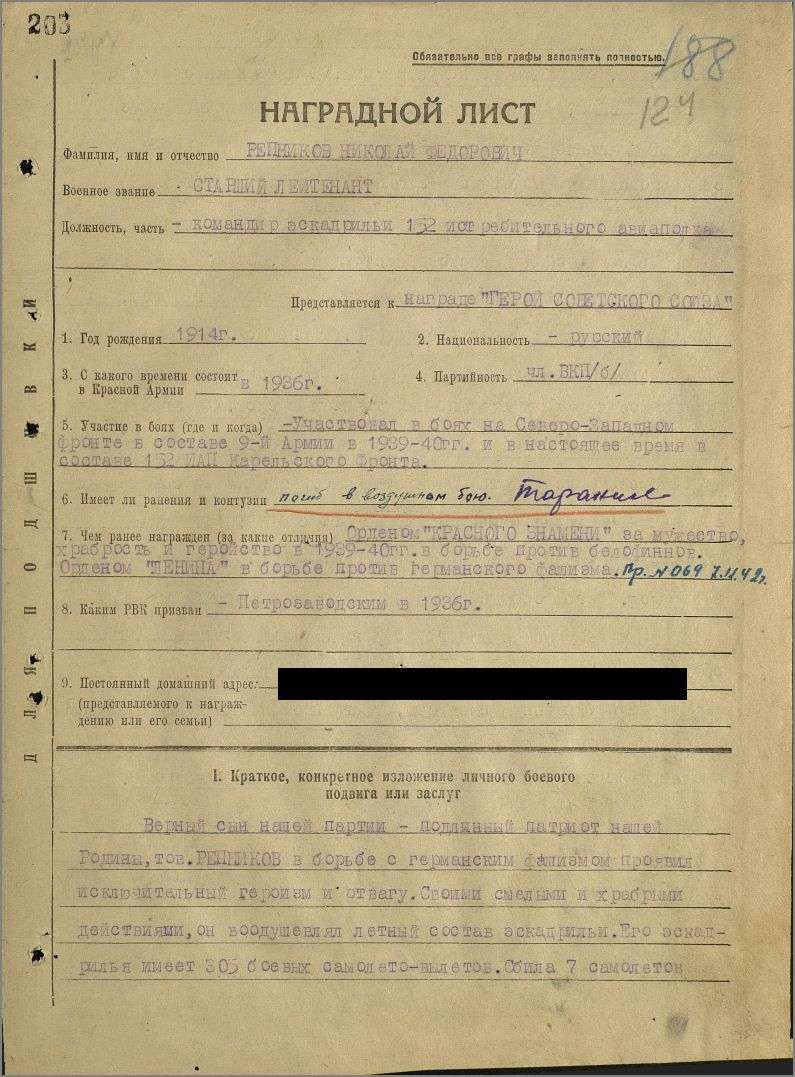 203
Обязательно все графы заполнять полностью.
188
124
НАГРАДНОЙ ЛИСТ
Фамилия, имя и отчество РЕПНИКОВ НИКОЛАЙ ФЕДОРОВИЧ
Военное звание - СТАРШИЙ ЛЕЙТЕНАНТ
Должность, часть - командир эскадрильи 152 истребительного авиаполка
Представляется к награде "ГЕРОЙ СОВЕТСКОГО СОЮЗА"
1. Год рождения 1914г.
2. Национальность - русский
3. С какого времени состоит в Красной Армии в 1936г.
4. Партийность чл.ВКП/б/
5. Участие в боях (где и когда) -Участвовал в боях на Северо-Западном
фронте в составе 9-й Армии в 1939-40гг. и в настоящее время в
составе 152 ИАП Карельского Фронта.
6. Имеет ли ранения и контузии погиб в воздушном бою.
7. Чем ранее награжден (за какие отличия) Орденом "КРАСНОГО ЗНАМЕНИ" за мужество,
храбрость и геройство в 1939-40гг. в борьбе против белофиннов.
Орденом "ЛЕНИНА" в борьбе против германского фашизма. Пр. №069 7.11.42г.
8. Каким РВК призван - Петрозаводским в 1936г.
9. Постоянный домашний адрес:
(представляемого к награж-
дению или его семьи)
ДЛЯ ПОДШИВКИ
I. Краткое, конкретное изложение личного боевого
подвига или заслуг
Верный сын нашей партии - подлинный патриот нашей
Родины, тов. РЕПНИКОВ в борьбе с германским фашизмом проявил
исключительный героизм и отвагу. Своими смелыми и храбрыми
действиями, он воодушевлял летный состав эскадрильи. Его эскад-
рилья имеет 305 боевых самолето-вылетов. Сбила 7 самолетов